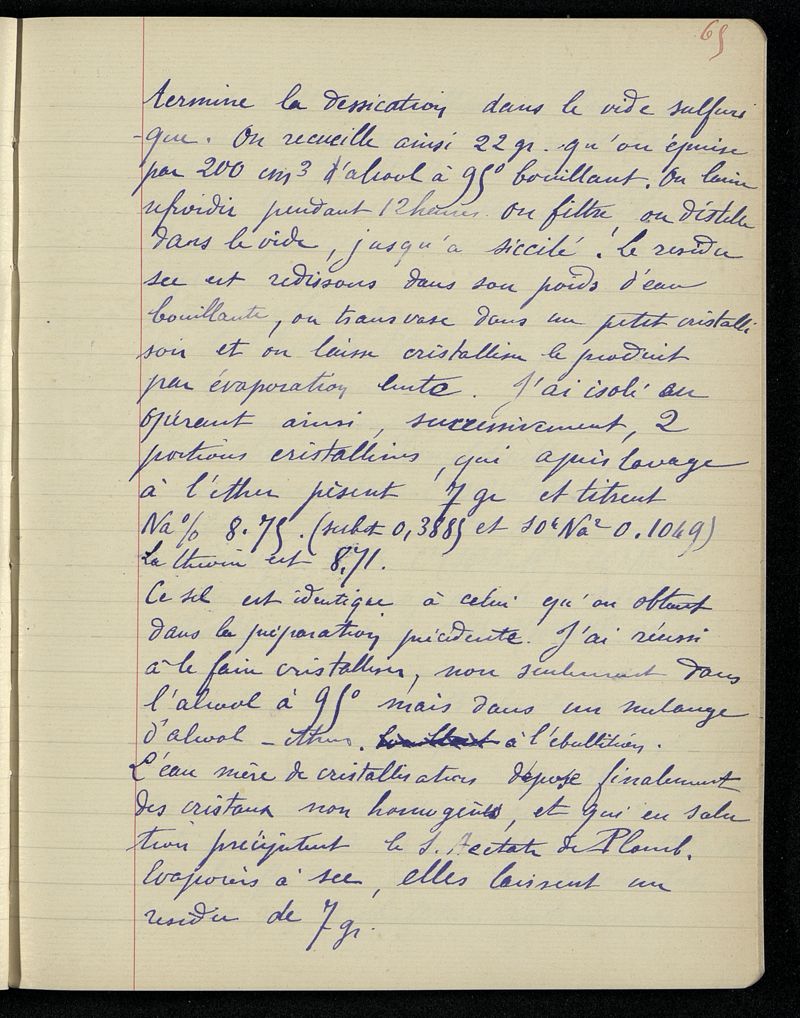 65
termine la dessication dans le vide sulfuri
-que. On recueille ainsi 22 gr. qu'on épuise
par 200 cm3 d'alcool à 95° bouillant. On laisse
refroidir pendant 12 heures on filtre on distille
dans le vide, jusqu'à siccité. Le residu
sec est redissous dans son poids d'eau
bouillante, on transvase dans un petit cristalli
soir et on laisse cristalliser le produit
par évaporation lente. J'ai isolé en
opérant ainsi, successivement, 2
portions cristallines, qui après lavage
à l'ether pèsent 7 gr et titrent
Na % 8.75. (subst 0,3885 et SO4Na2 0.1049)
La théorie est 8,71.
Ce sel est identique à celui qu'on obtient
dans la préparation précédente. J'ai réussi
à le faire cristalliser, non seulement dans
l'alcool à 95° mais dans un melange
d'alcool - ether. bouillant à l'ébullition.
L'eau mère de cristallisation dépose finalement
des cristaux non homogènes, et qui en solu
tion précipitent le S. Acétate de Plomb.
Evaporées à sec, elles laissent un
residu de 7 gr.